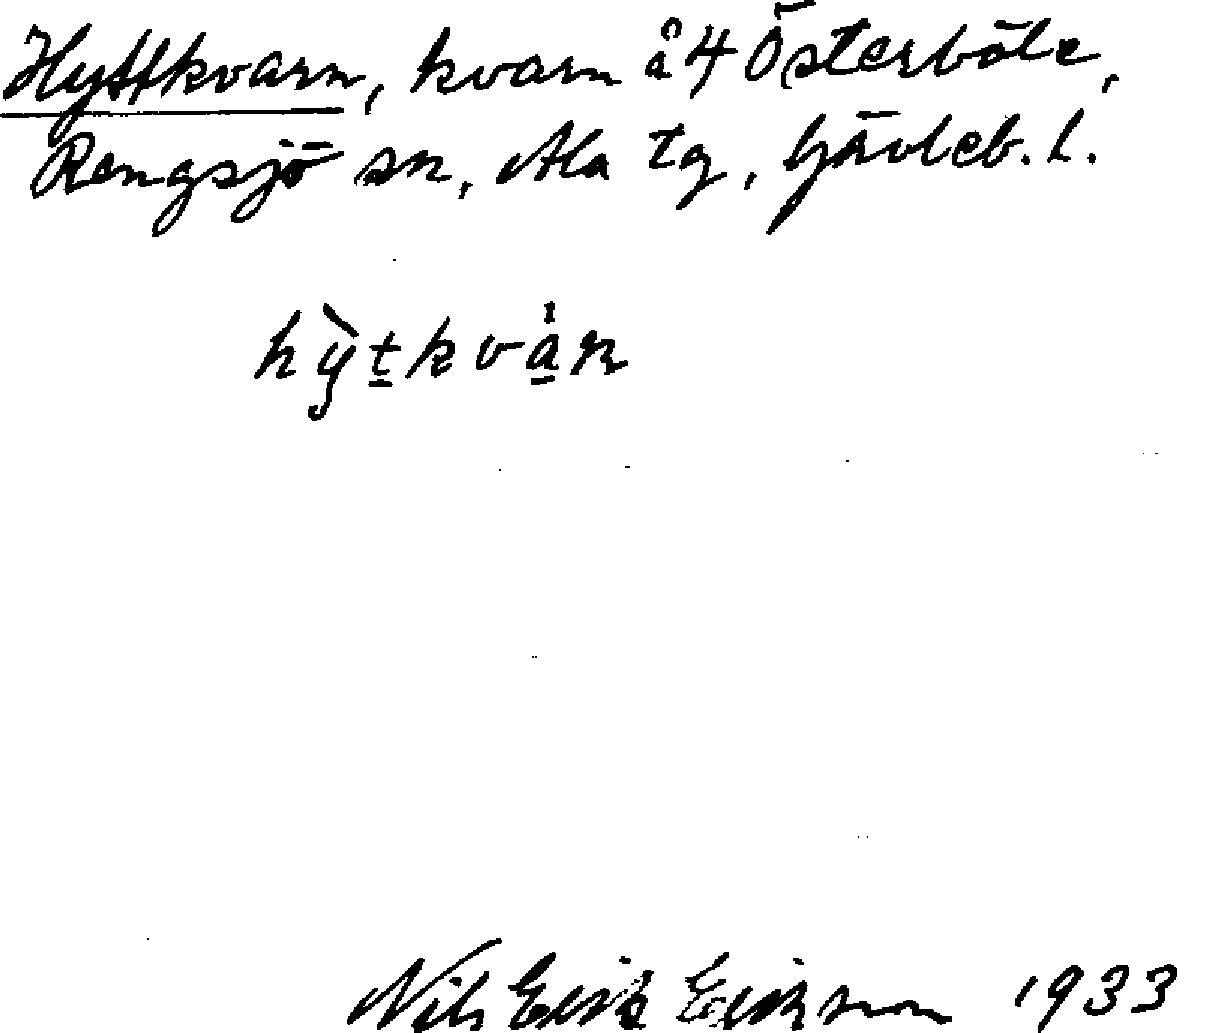 Hyttkvarn, kvarn å 4 Österböle,
Rengsjö sn, Ala tg, Gävleb. l.
hy̆̀t̲kvȧ̲n
Nils Erik Erikson 1933